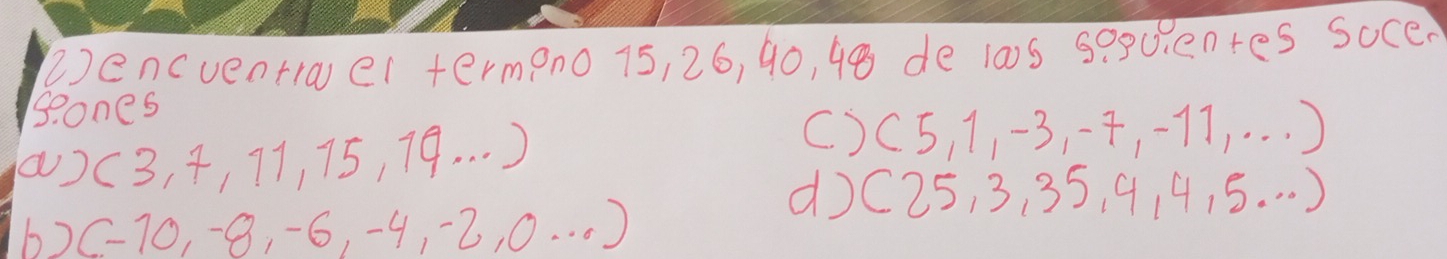 2) encuentra el termino 15, 26, 40, 48 de las siguientes suce-
siones
a) (3, 7, 11, 15, 19...)
c) (5, 1, -3, -7, -11, ...)
b) (-10, -8, -6, -4, -2, 0...)
d) (25, 3, 35, 4, 4, 5...)